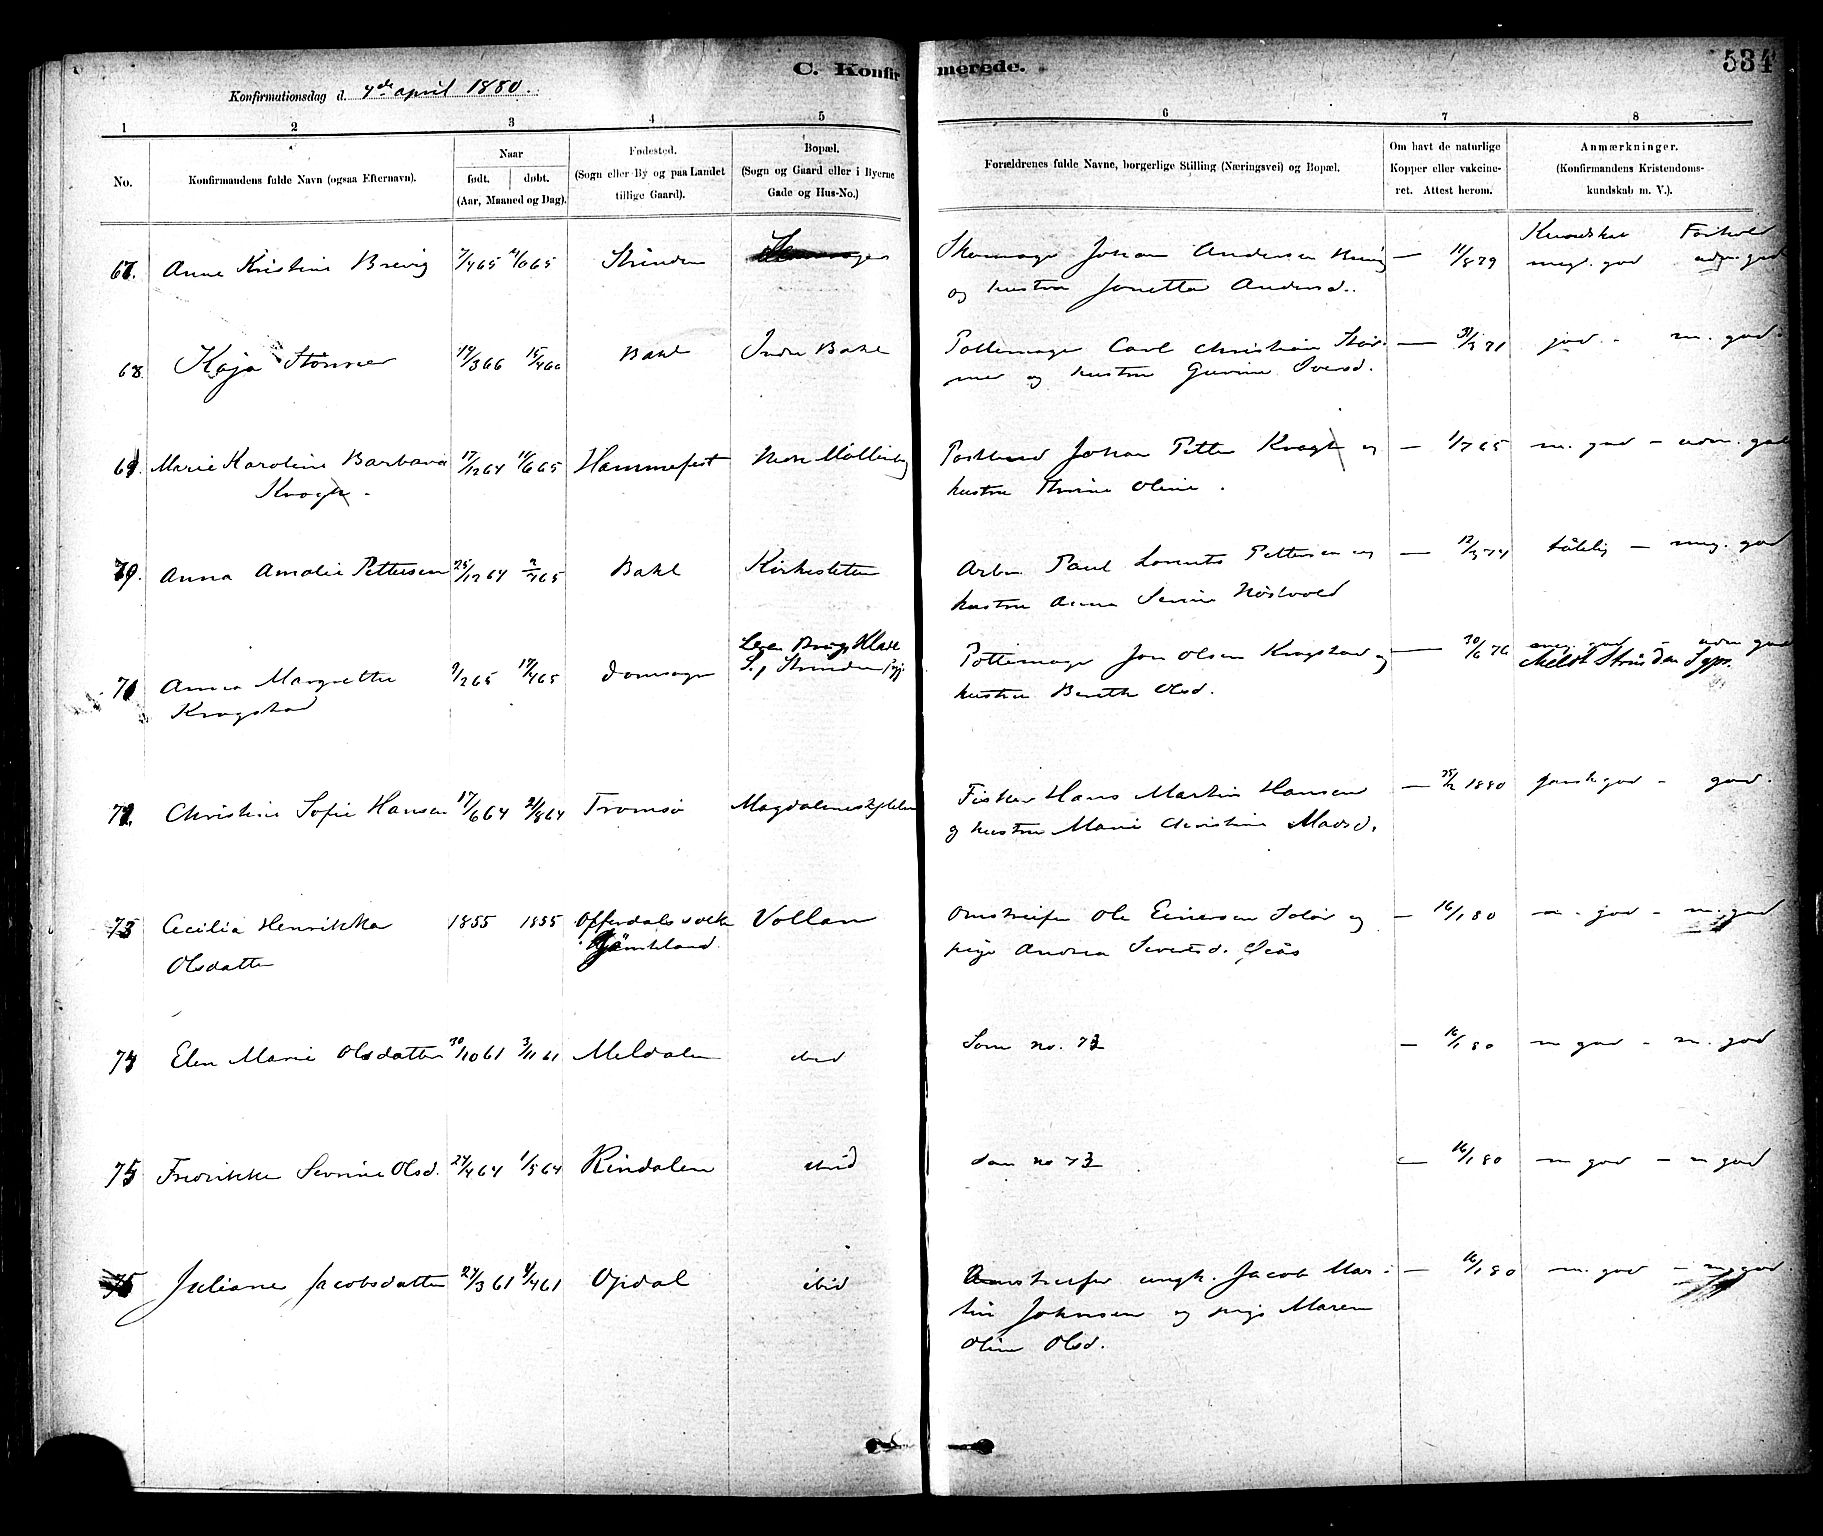 C. Konfirmerede.
534
Konfirmationsdag d. 7de april 1880.
1 2 3 4 5 6 7 8
No.
Konfirmandens fulde Navn (ogsaa Efternavn).
Naar
født. døbt.
(Aar, Maaned og Dag).
Fødested.
(Sogn eller By og paa Landet
tillige Gaard).
Bopæl.
(Sogn og Gaard eller i Byerne
Gade og Hus-No.)
Forældrenes fulde Navne, borgerlige Stilling (Næringsvei) og Bopæl.
Om havt de naturlige
Kopper eller vakcine-
ret. Attest herom.
Anmærkninger.
(Konfirmandens Kristendoms-
kundskab m. V.).
Kundskab Forhold
67. Anne Kristine Brevig 7/4 65 65 Strinden Skomager Johan Andersen — 11/8 79 meg. god udm. god
og hustru Jonetta Andersd.
68. Kaja Størmer 14/3 66 15/4 66 Bakl Indre Bakl Pottemager Carl Christian Stør- — 31/3 71 god - m. god
mer og hustru Gurine Iversd.
69. Marie Karoline Barbara 17/12 64 11/6 65 Hammefest Nedre Møllenbg Postbud Johan Petter Krogh og — 1/7 65 m. god - udm. god
Krogh. hustru Thrine Oline.
70. Anna Amalie Pettersen 25/12 64 2/4 65 Bakl Kirkesleten Arbm Paul Lorents Pettersen og — 12/3 74 tålelig — meg. god
hustru Anna Serine Høstvold
71 Anna Margrethe 9/2 65 17/4 65 Domsogn S., Strinden Pottemager Jon Olsen Krogstad og — 30/6 76 meg. god - udm god
Krogstad hustru Bereth Olsd. Meldt Strinden Sgpr.
72. Christine Sofie Hansen 17/6 64 21/8 64 Tromsø Fisker Hans Martin Hansen — 25/2 1880 ganske god - god.
og hustru Marie Christine Madsd.
73 Cecilia Henrikka 1855 1855 Offerdals sokn Vollan Omstreifer Ole Einersen Solør og — 16/1 80 m. god - m. god
Olsdatter i Jämtland. pige Andrea Sivertsd.
74 Elen Marie Olsdatter 30/10 61 3/11 61 Meldalen ibid Som no. 73 — 16/1 80 m god - m. god
75 Fredrikke Sevrine Olsd. 24/4 64 1/5 64 Rindalen ibid Som no 73 — 16/1 80 m god - m god
Juliane Jacobsdatter 27/3 61 9/4 61 Opdal ibid Omstreifer ungk. Jacob Mar- — 16/1 80 m. god - m. god
tin Johnsen og pige Maren
Oline Olsd.